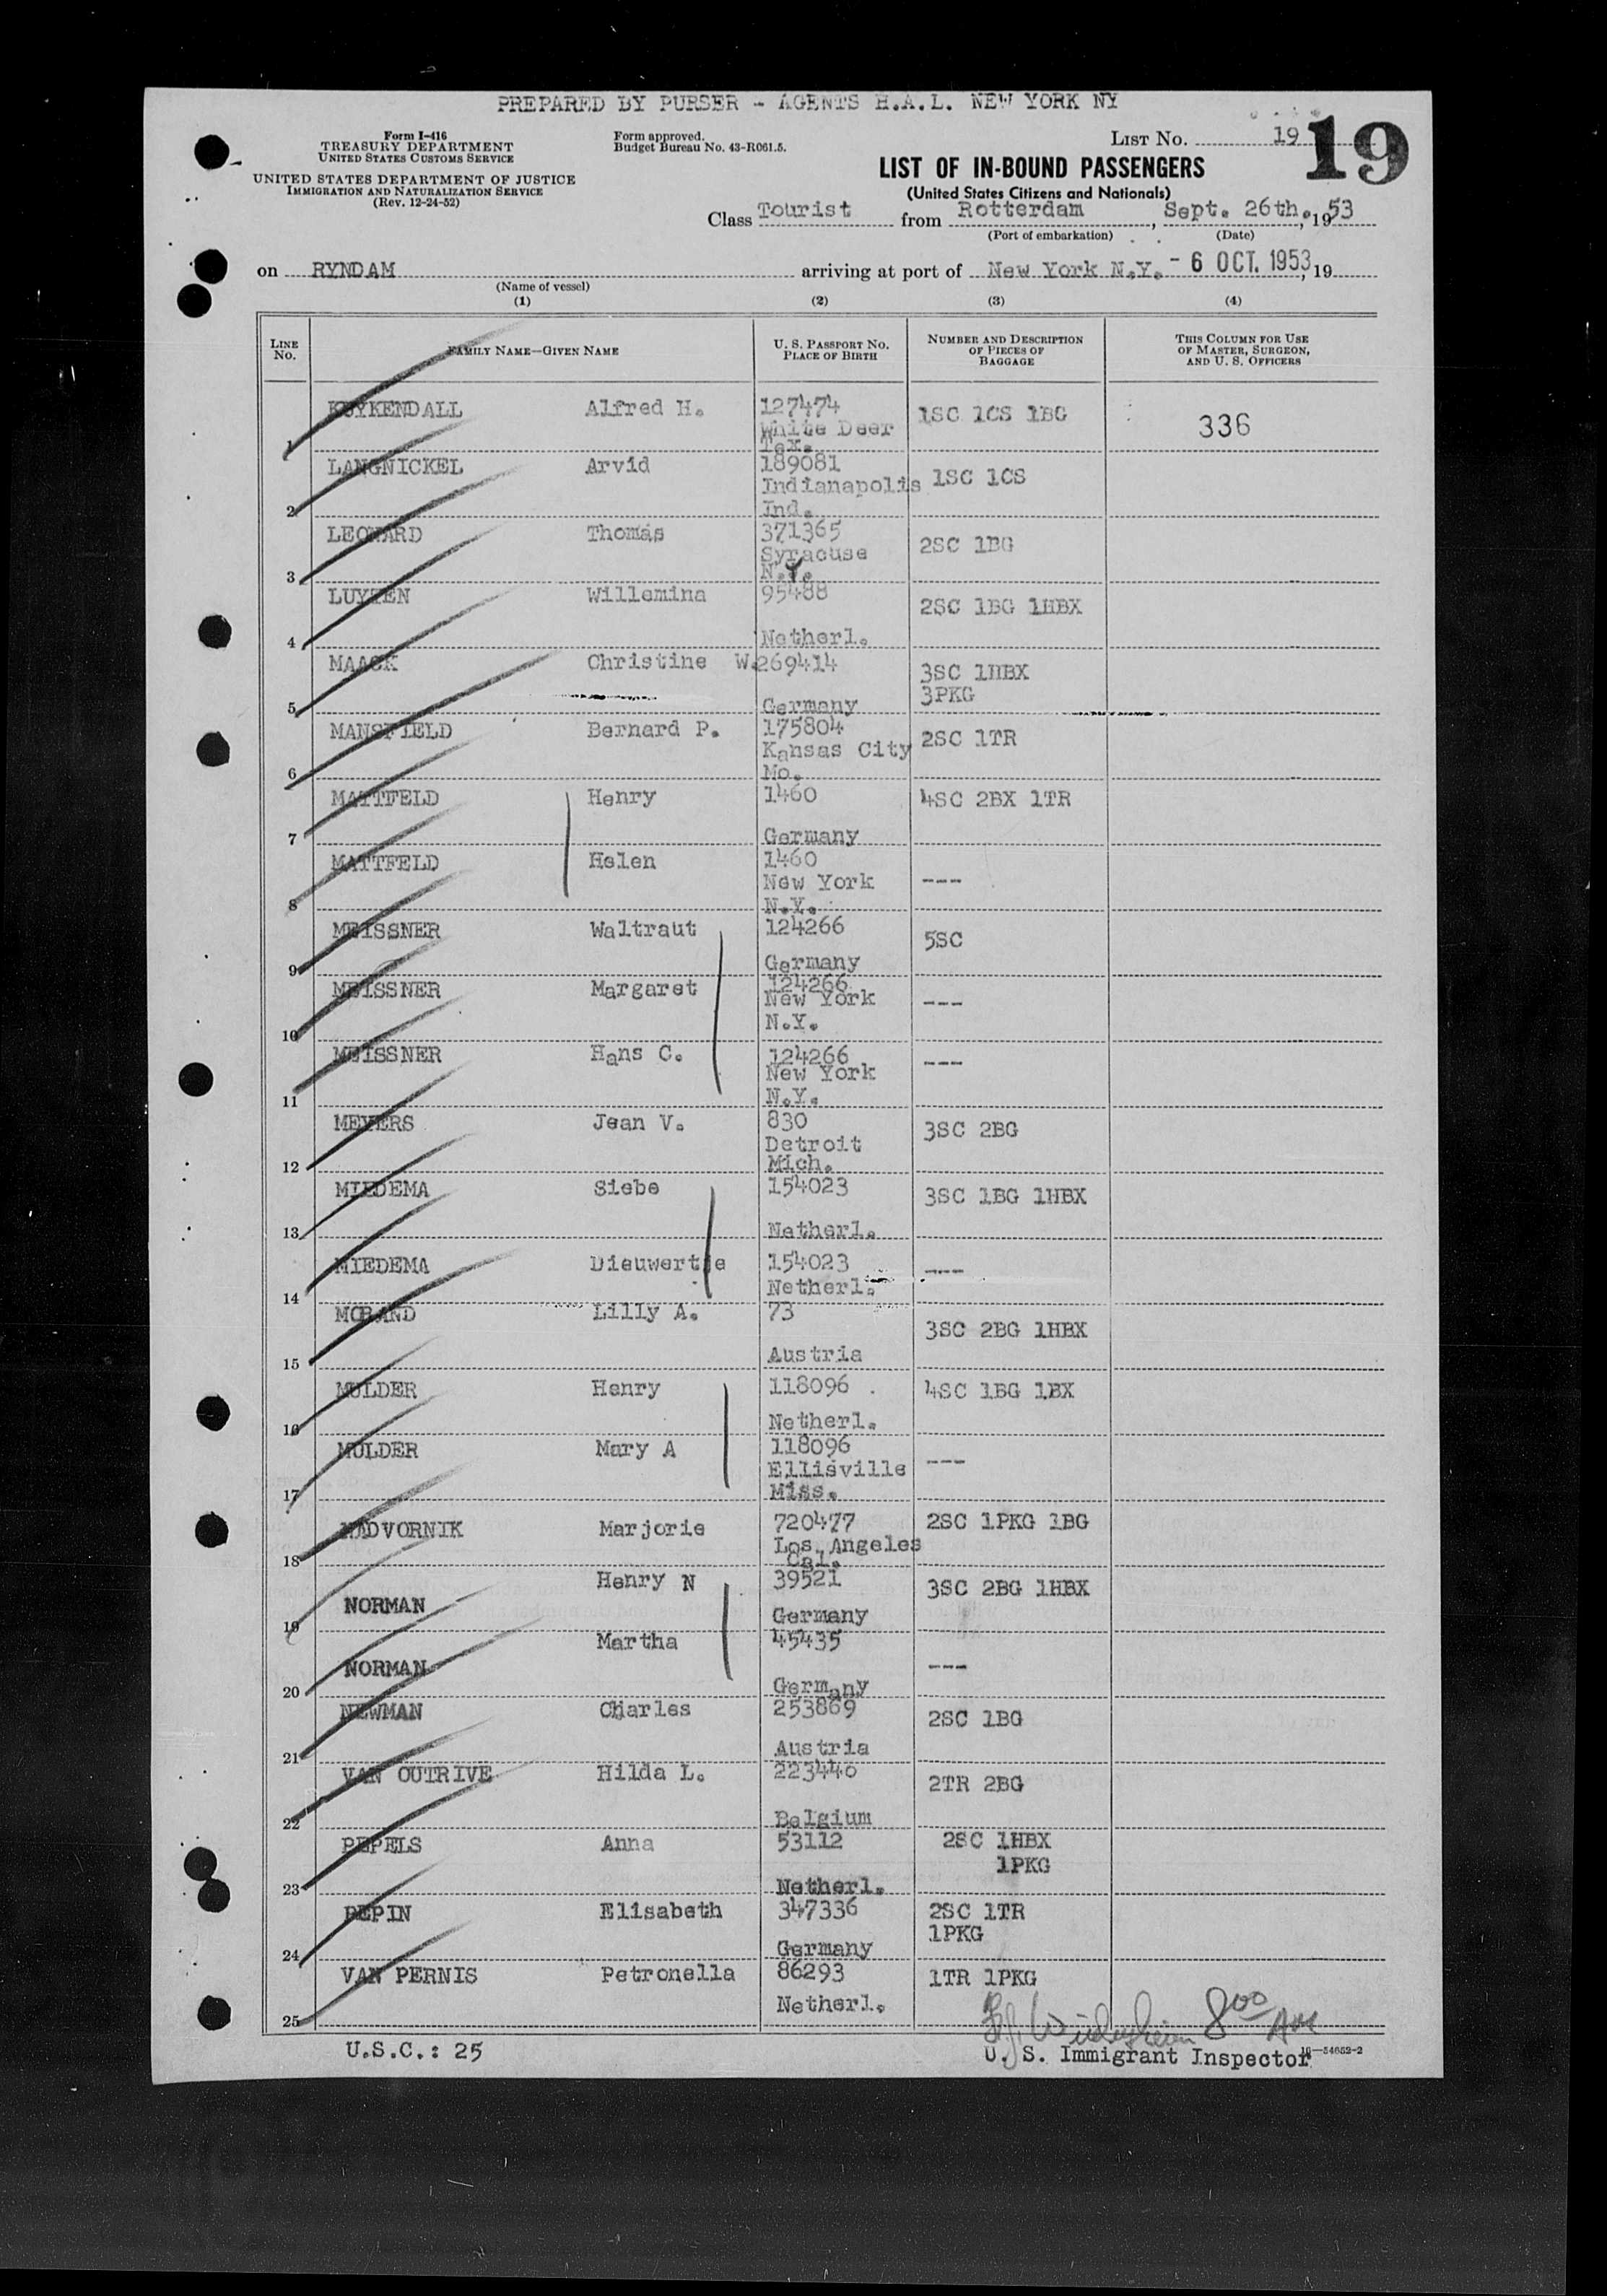 PREPARED BY PURSER - AGENTS H.A.L. NEW YORK NY
Form I-416
TREASURY DEPARTMENT
UNITED STATES CUSTOMS SERVICE
UNITED STATES DEPARTMENT OF JUSTICE
IMMIGRATION AND NATURALIZATION SERVICE
(Rev. 12-24-52)
Form approved.
Budget Bureau No. 43-R061.5.
LIST No. 19
19
LIST OF IN-BOUND PASSENGERS
(United States Citizens and Nationals)
Class Tourist from Rotterdam, Sept. 26th., 1953
(Port of embarkation) (Date)
on RYNDAM arriving at port of New York N.Y. - 6 OCT. 1953, 19
(Name of vessel)
(1) (2) (3) (4)
LINE No. FAMILY NAME—GIVEN NAME U. S. PASSPORT No. PLACE OF BIRTH NUMBER AND DESCRIPTION OF PIECES OF BAGGAGE THIS COLUMN FOR USE OF MASTER, SURGEON, AND U. S. OFFICERS
1 KUYKENDALL Alfred H. 127474 White Deer Tex. 1SC 1CS 1BG 336
2 LANGNICKEL Arvid 189081 Indianapolis Ind. 1SC 1CS
3 LEONARD Thomas 371365 Syracuse N.Y. 2SC 1BG
4 LUYTEN Willemina 95488 Netherl. 2SC 1BG 1HBX
5 MAACK Christine W. 269414 Germany 3SC 1HBX 3PKG
6 MANSFIELD Bernard P. 175804 Kansas City Mo. 2SC 1TR
7 MATTFELD Henry 1460 Germany 4SC 2BX 1TR
8 MATTFELD Helen 1460 New York N.Y. ---
9 MEISSNER Waltraut 124266 Germany 5SC
10 MEISSNER Margaret 124266 New York N.Y. ---
11 MEISSNER Hans C. 124266 New York N.Y. ---
12 MEYERS Jean V. 830 Detroit Mich. 3SC 2BG
13 MIEDEMA Siebe 154023 Netherl. 3SC 1BG 1HBX
14 MIEDEMA Dieuwertje 154023 Netherl. ---
15 MORAND Lilly A. 73 Austria 3SC 2BG 1HBX
16 MULDER Henry 118096 Netherl. 4SC 1BG 1BX
17 MULDER Mary A 118096 Ellisville Miss. ---
18 NADVORNIK Marjorie 720477 Los Angeles Cal. 2SC 1PKG 1BG
19 NORMAN Henry N 39521 Germany 3SC 2BG 1HBX
20 NORMAN Martha 45435 Germany ---
21 NEWMAN Charles 253869 Austria 2SC 1BG
22 VAN OUTRIVE Hilda L. 223440 Belgium 2TR 2BG
23 PEPELS Anna 53112 Netherl. 2SC 1HBX 1PKG
24 PEPIN Elisabeth 347336 Germany 2SC 1TR 1PKG
25 VAN PERNIS Petronella 86293 Netherl. 1TR 1PKG
8 00 AM
U.S.C.: 25
U. S. Immigrant Inspector 16—54652-2